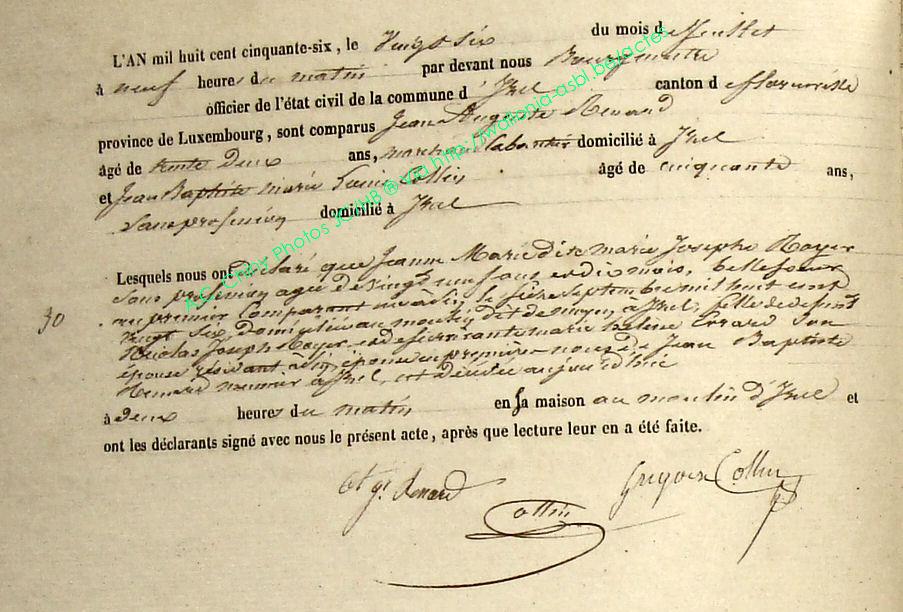 L'AN mil huit cent cinquante-six, le Vingt six du mois de Juillet
à neuf heures du matin par devant nous Bourgmestre
officier de l'état civil de la commune d'Izel canton de florenville
province de Luxembourg, sont comparus Jean Auguste Renard
âgé de trente deux ans, marchand domicilié à Izel
et Jean Baptiste marie Louis Collin âgé de cinquante ans,
sans profession domicilié à Izel
Lesquels nous ont déclaré que Jeanne Marie dite marie Josephe Royer
sans profession agée de vingt neuf ans et dix mois, belle soeur
au premier Comparant née à le septembre mil huit cent
30
vingt six domiciliée au moulin dit de à Izel, fille de defunt
Nicolas Joseph Royer, et de survivante marie helene Evrard son
épouse résidant à épouse en première noces de Jean Baptiste
Renard meunier à Izel, est décédée aujourd'hui
à deux heures du matin en sa maison au moulin d'Izel et
ont les déclarants signé avec nous le présent acte, après que lecture leur en a été faite.
Renard Grégoire Collin
Collin
A.G. COPY Photos JCMB ® Via http://wallonia-asbl.be/actes